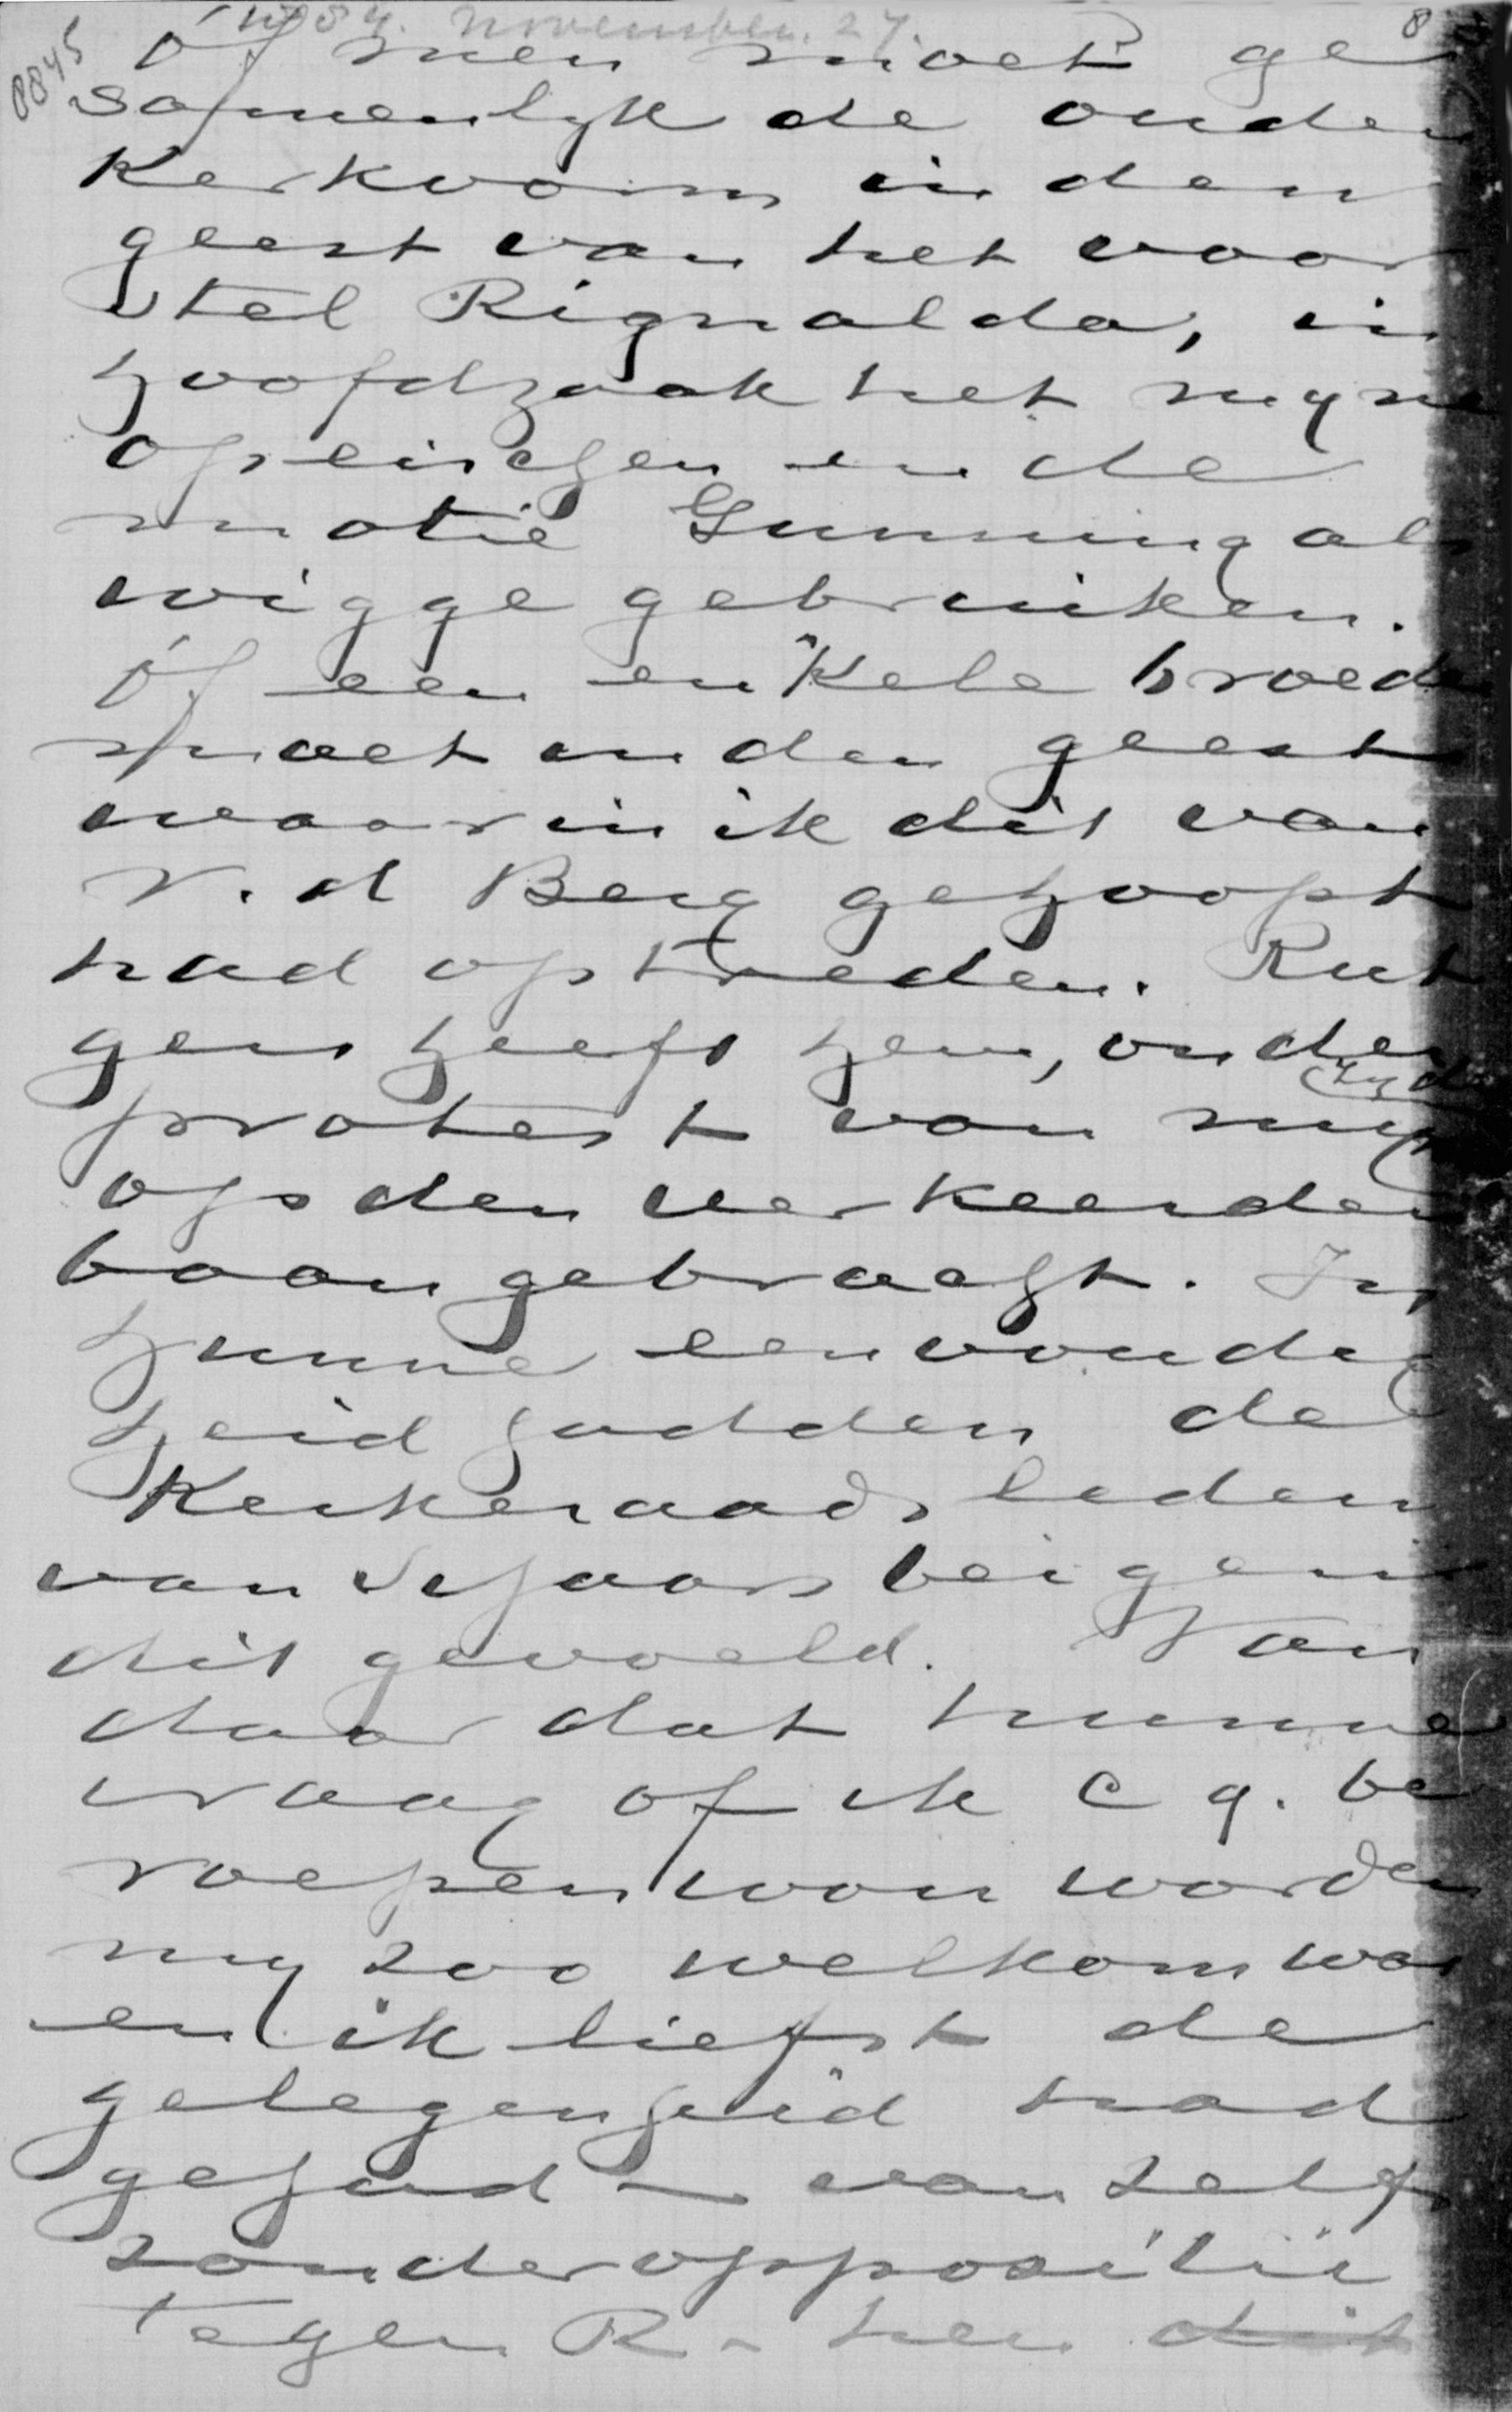 1884. November 27.
0845
Óf men moet ge
samenlyk de ouden
Kerkvorm in den
geest van het voor
stel Rignalda, in
hoofdzaak het myne
opeischen en de
motie Gunning als
wigge gebruiken.
Óf een enkele broeder
moet in den geest
waarin ik dit van
V. d Berg gehoopt
had optreden. Rut
gers heeft hem, onder
protest van myn zyde
op den verkeerden
baan gebracht. In
hunne eenvoudig
heid hadden de
Kerkeraads leden
van Schaarsbergen
dit gevoeld. Van
daar dat hunne
vraag of ik c q. be
roepen wou worden
my zoo welkom was
en ik liefst de
gelegenheid had
gehad - van zelf
zonder oppositie
tegen R - hen dit